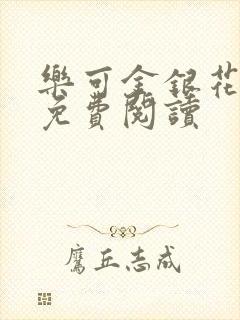 樂可金銀花
免費閱讀
鷹丘志成